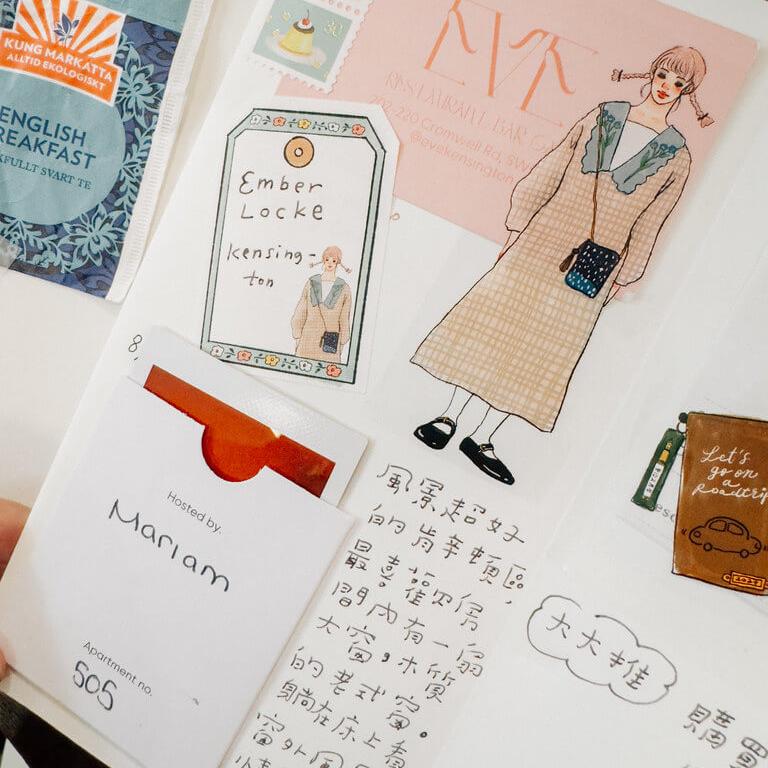 KUNG MARKATTA
ALLTID EKOLOGISKT
ENGLISH
BREAKFAST
KFULLT SVART TE
EVE
RESTAURANT BAR
Cromwell Rd, SW
@evekensington
Ember
Locke
Kensing-
ton
8,
Hosted by.
Mariam
Apartment no.
505
風景超好
的肯辛頓區,
最喜歡房
間內有一扇
大窗,木質
的老式窗。
躺在床上看
窗外風
大大推
購買
Let's
go on
a
Roadtrip